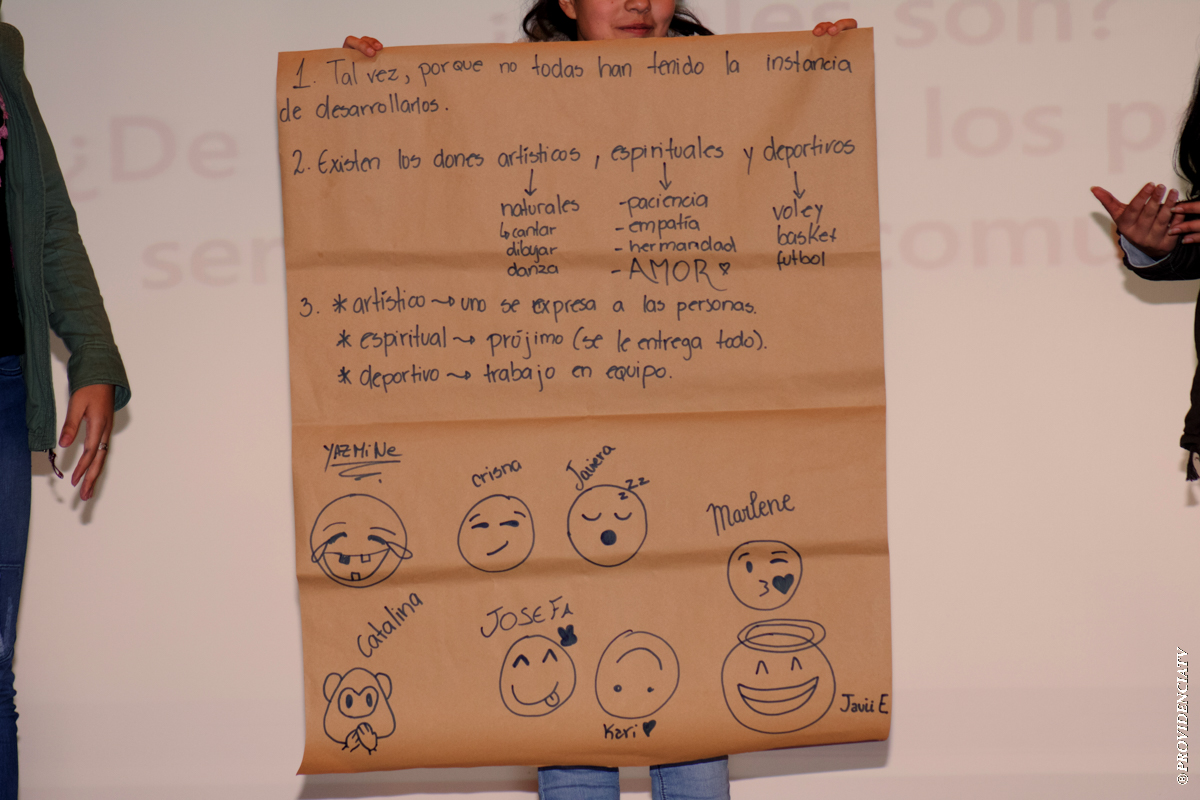 ¿De
son?
los
1. Tal vez, porque no todas han tenido la instancia
de desarrollarlos.
2. Existen los dones artísticos, espirituales y deportivos
naturales
↳ cantar
dibujar
danza
- paciencia
- empatía
- hermandad
- AMOR ♡
voley
basket
futbol
3. * artístico → uno se expresa a las personas.
* espiritual → prójimo (se le entrega todo).
* deportivo → trabajo en equipo.
YAZMiNe
crisna
Javiera
zzz
Marlene
Catalina
JOSEFA
Kari ♥
Javii E
®PROVIDENCIATV